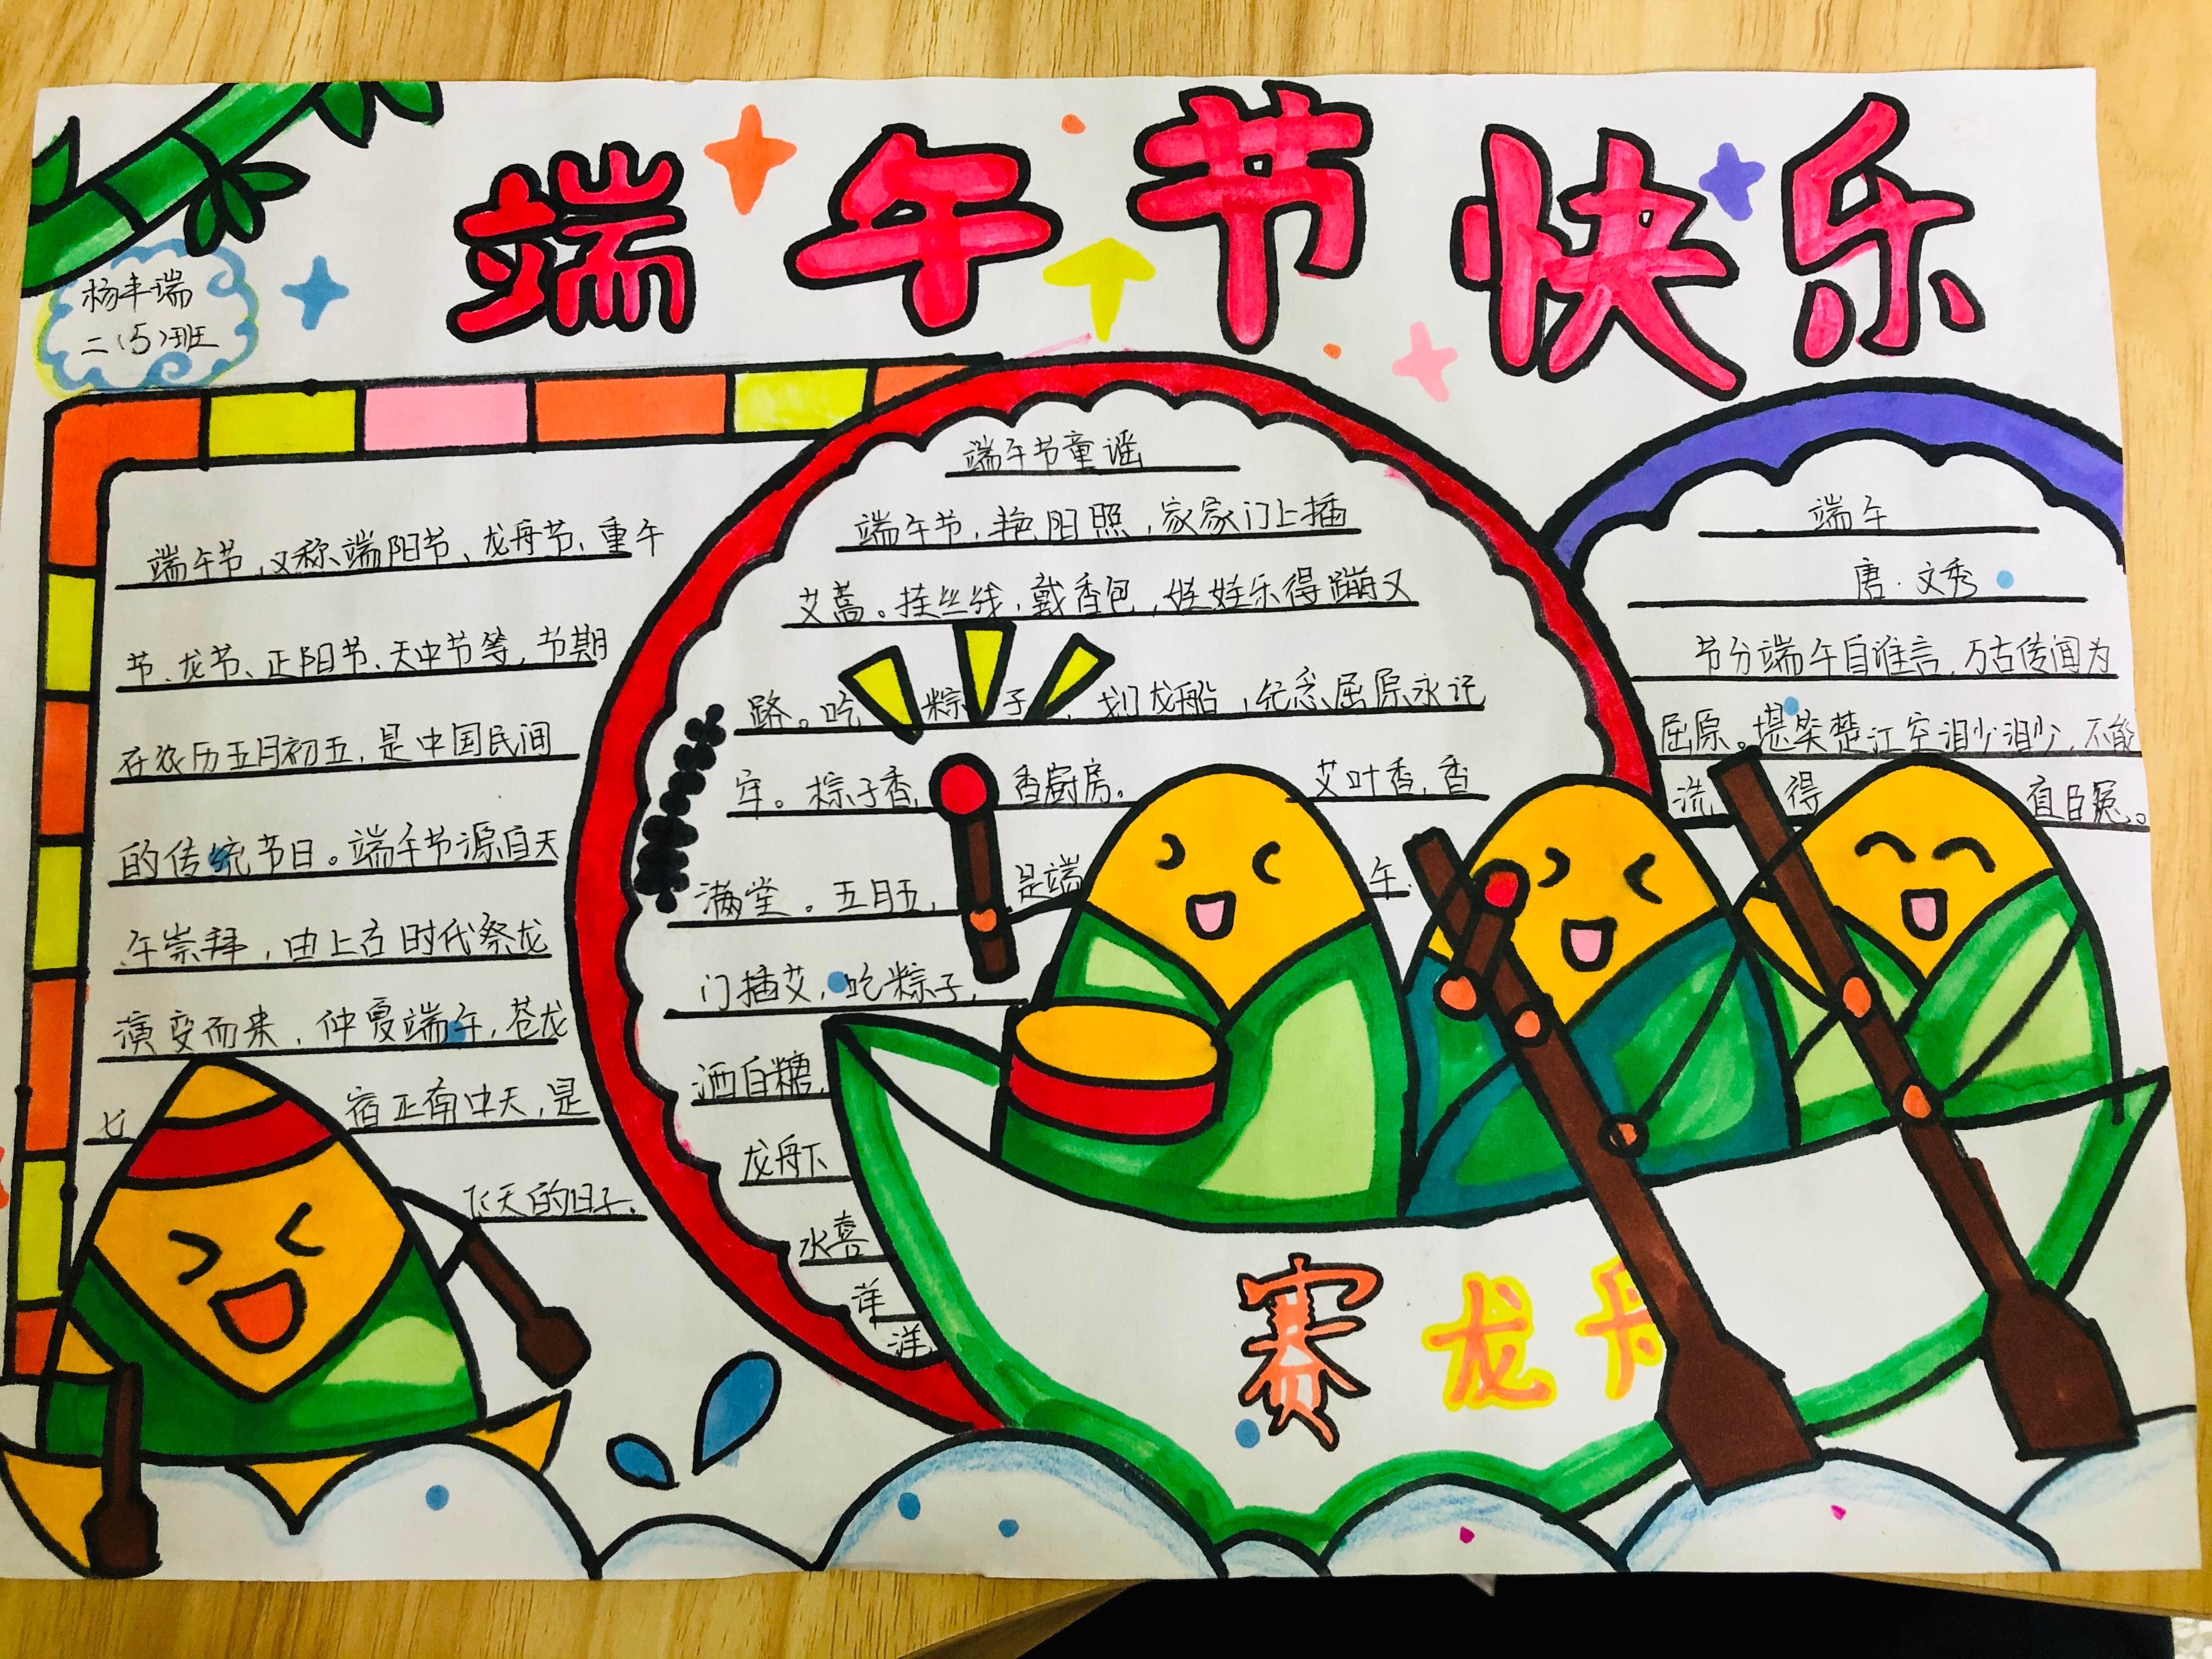 端午节快乐
杨丰瑞
二(5)班
端午节,又称端阳节、龙舟节、重午
节、龙节、正阳节、天中节等,节期
在农历五月初五,是中国民间
的传统节日。端午节源自天
午崇拜,由上古时代祭龙
演变而来,仲夏端午,苍龙
七宿正南中天,是
飞天的日子.
端午节童谣
端午节,艳阳照,家家门上插
艾蒿。挂丝线,戴香包,娃娃乐得蹦又
路。吃粽子,划龙船,纪念屈原永记
牢。粽子香,香厨房。艾叶香,香
满堂。五月五,是端午.
门插艾,吃粽子,
洒白糖,
龙舟下
水喜
洋
洋
端午
唐·文秀
节分端午自谁言,万古传闻为
屈原。堪笑楚江空渺渺,不能
洗得直臣冤。
赛龙舟